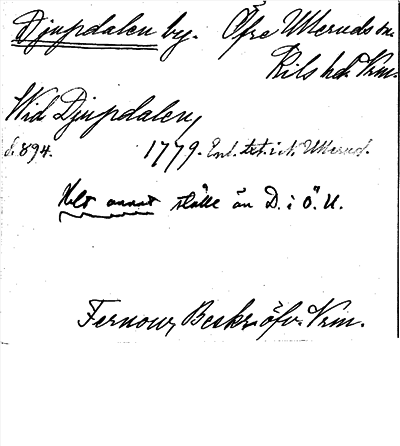 Djupdalen by. Öfre Ulleruds sn.
Kils hd. Vrm.
Wid Djupdalen,
s. 894. 1779. Enl. tet. i N. Ullerud.
Helt annat ställe än D. i Ö. U.
Fernow, Beskr. öfv. Vrm.